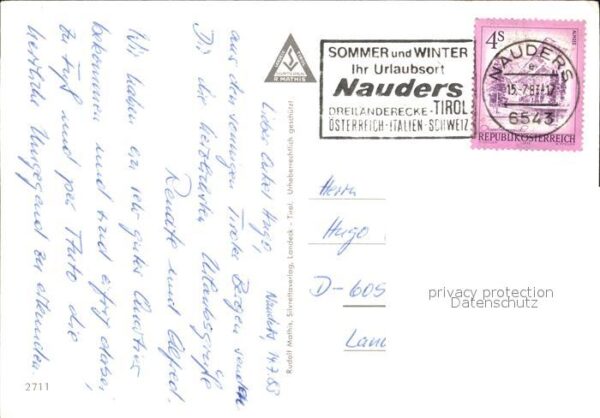 Nauders, 14.7.83
Lieber Onkel Hugo,
aus den sonnigen Tiroler Bergen senden
Dir die herzlichsten Urlaubsgrüße
Renate und Alfred.
Wir haben ein sehr gutes Quartier
bekommen und sind eifrig dabei,
zu Fuß und per Auto die
herrliche Umgegend zu erkunden.
R. MATHIS
Rudolf Mathis, Silvrettaverlag, Landeck - Tirol. Urheberrechtlich geschützt
2711
SOMMER und WINTER
Ihr Urlaubsort
Nauders
DREILÄNDERECKE-TIROL
ÖSTERREICH-ITALIEN-SCHWEIZ
4S
NAUDERS
6543
REPUBLIK ÖSTERREICH
Herrn
Hugo
D-605
Land
privacy protection
Datenschutz